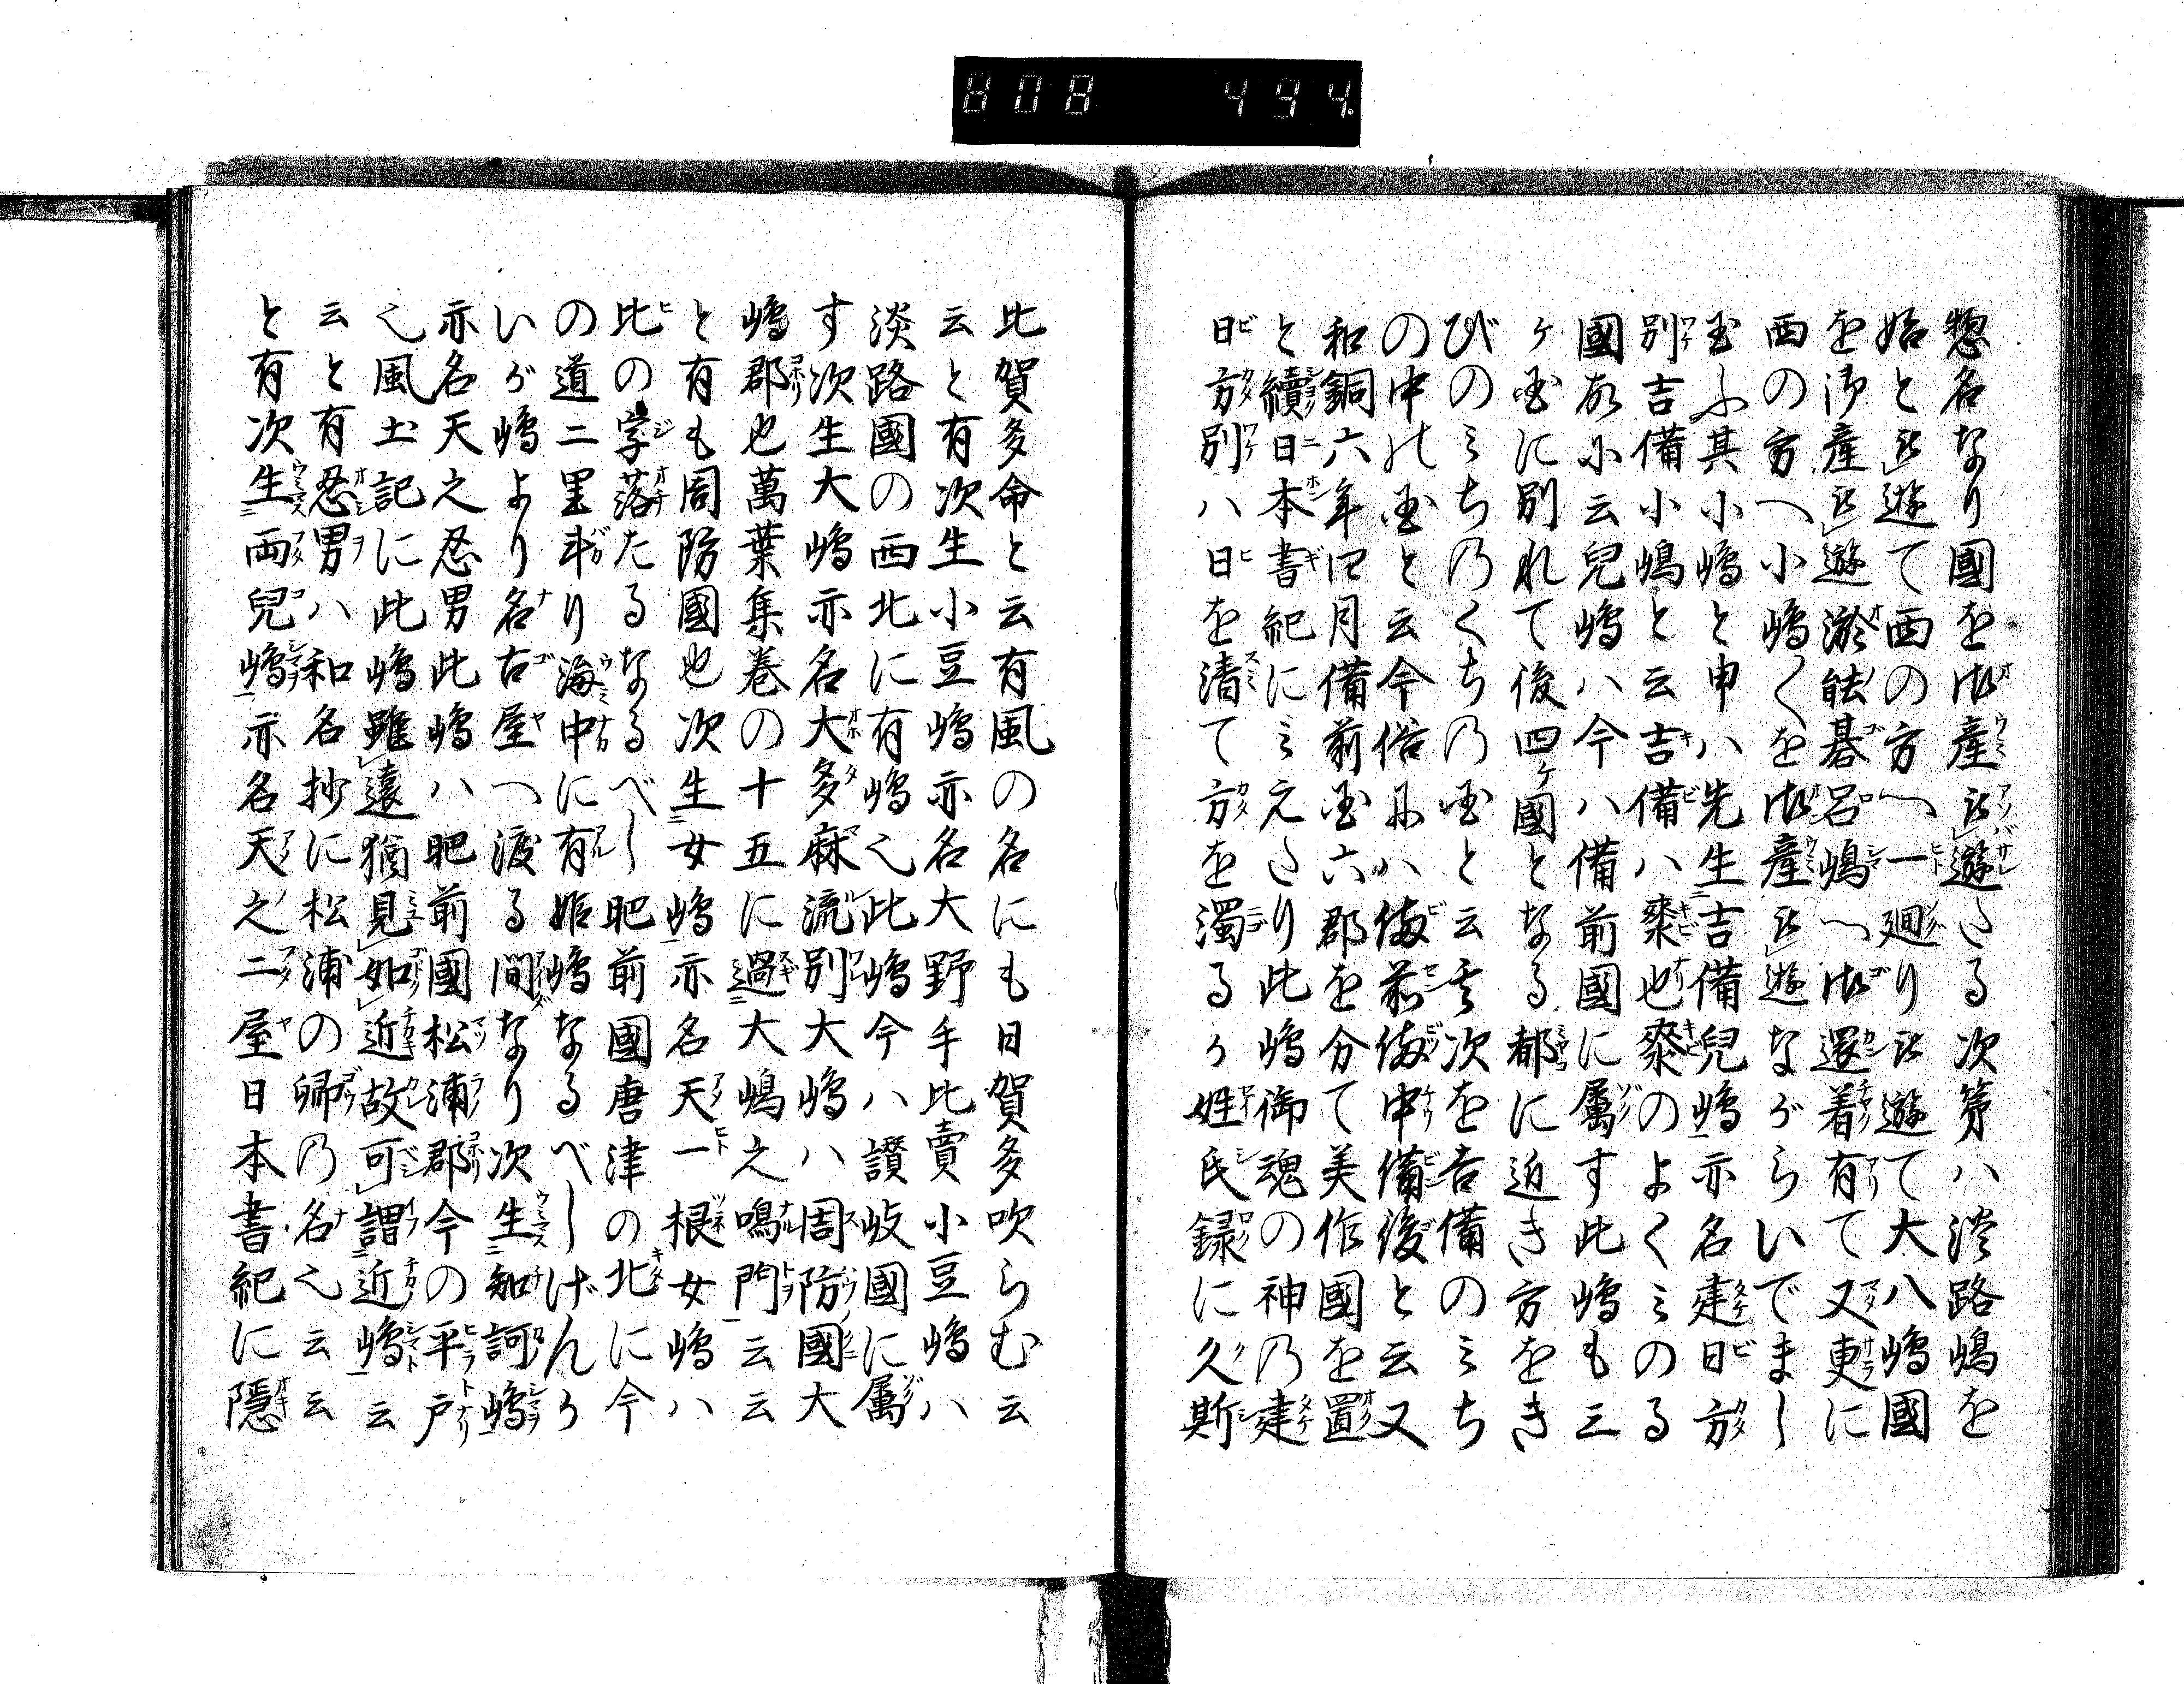 808 494.
惣名なり國を御産被遊たる次第ハ淡路嶋を
始と被遊て西の方へ一廻り被遊て大八嶋國
を御産被遊淤能碁呂嶋へ御還着有て又更に
西の方へ小嶋〱を御産被遊ながらいでまし
玉ふ其小嶋と申ハ先生吉備兒嶋亦名建日方
別吉備小嶋と云吉備ハ黍也黍のよくミのる
國故小云兒嶋ハ今ハ備前國に属す此嶋も三
ヶ国に別れて後四ヶ國となる都に近き方をき
びのミちのくちの国と云其次を吉備のミち
の中の国と云今俗にハ備前備中備後と云又
和銅六年四月備前国六郡を分て美作國を置
と續日本書紀にミえたり此嶋御魂の神の建
日方別ハ日を清て方を濁るか姓氏録に久斯
比賀多命と云有風の名にも日賀多吹らむ云
云と有次生小豆嶋亦名大野手比賣小豆嶋ハ
淡路國の西北に有嶋也此嶋今ハ讃岐國に属
す次生大嶋亦名大多麻流別大嶋ハ周防國大
嶋郡也萬葉集巻の十五に過大嶋之鳴門云云
と有も周防國也次生女嶋亦名天一根女嶋ハ
比の字落たるなるべし肥前國唐津の北に今
の道二里斗り海中に有姫嶋なるべしげんか
いが嶋より名古屋へ渡る間なり次生知訶嶋
亦名天之忍男此嶋ハ肥前國松浦郡今の平戸
也風土記に此嶋雖遠猶見如近故可謂近嶋云
云と有忍男ハ和名抄に松浦の郷の名也云云
と有次生両兒嶋亦名天之二屋日本書紀に隠